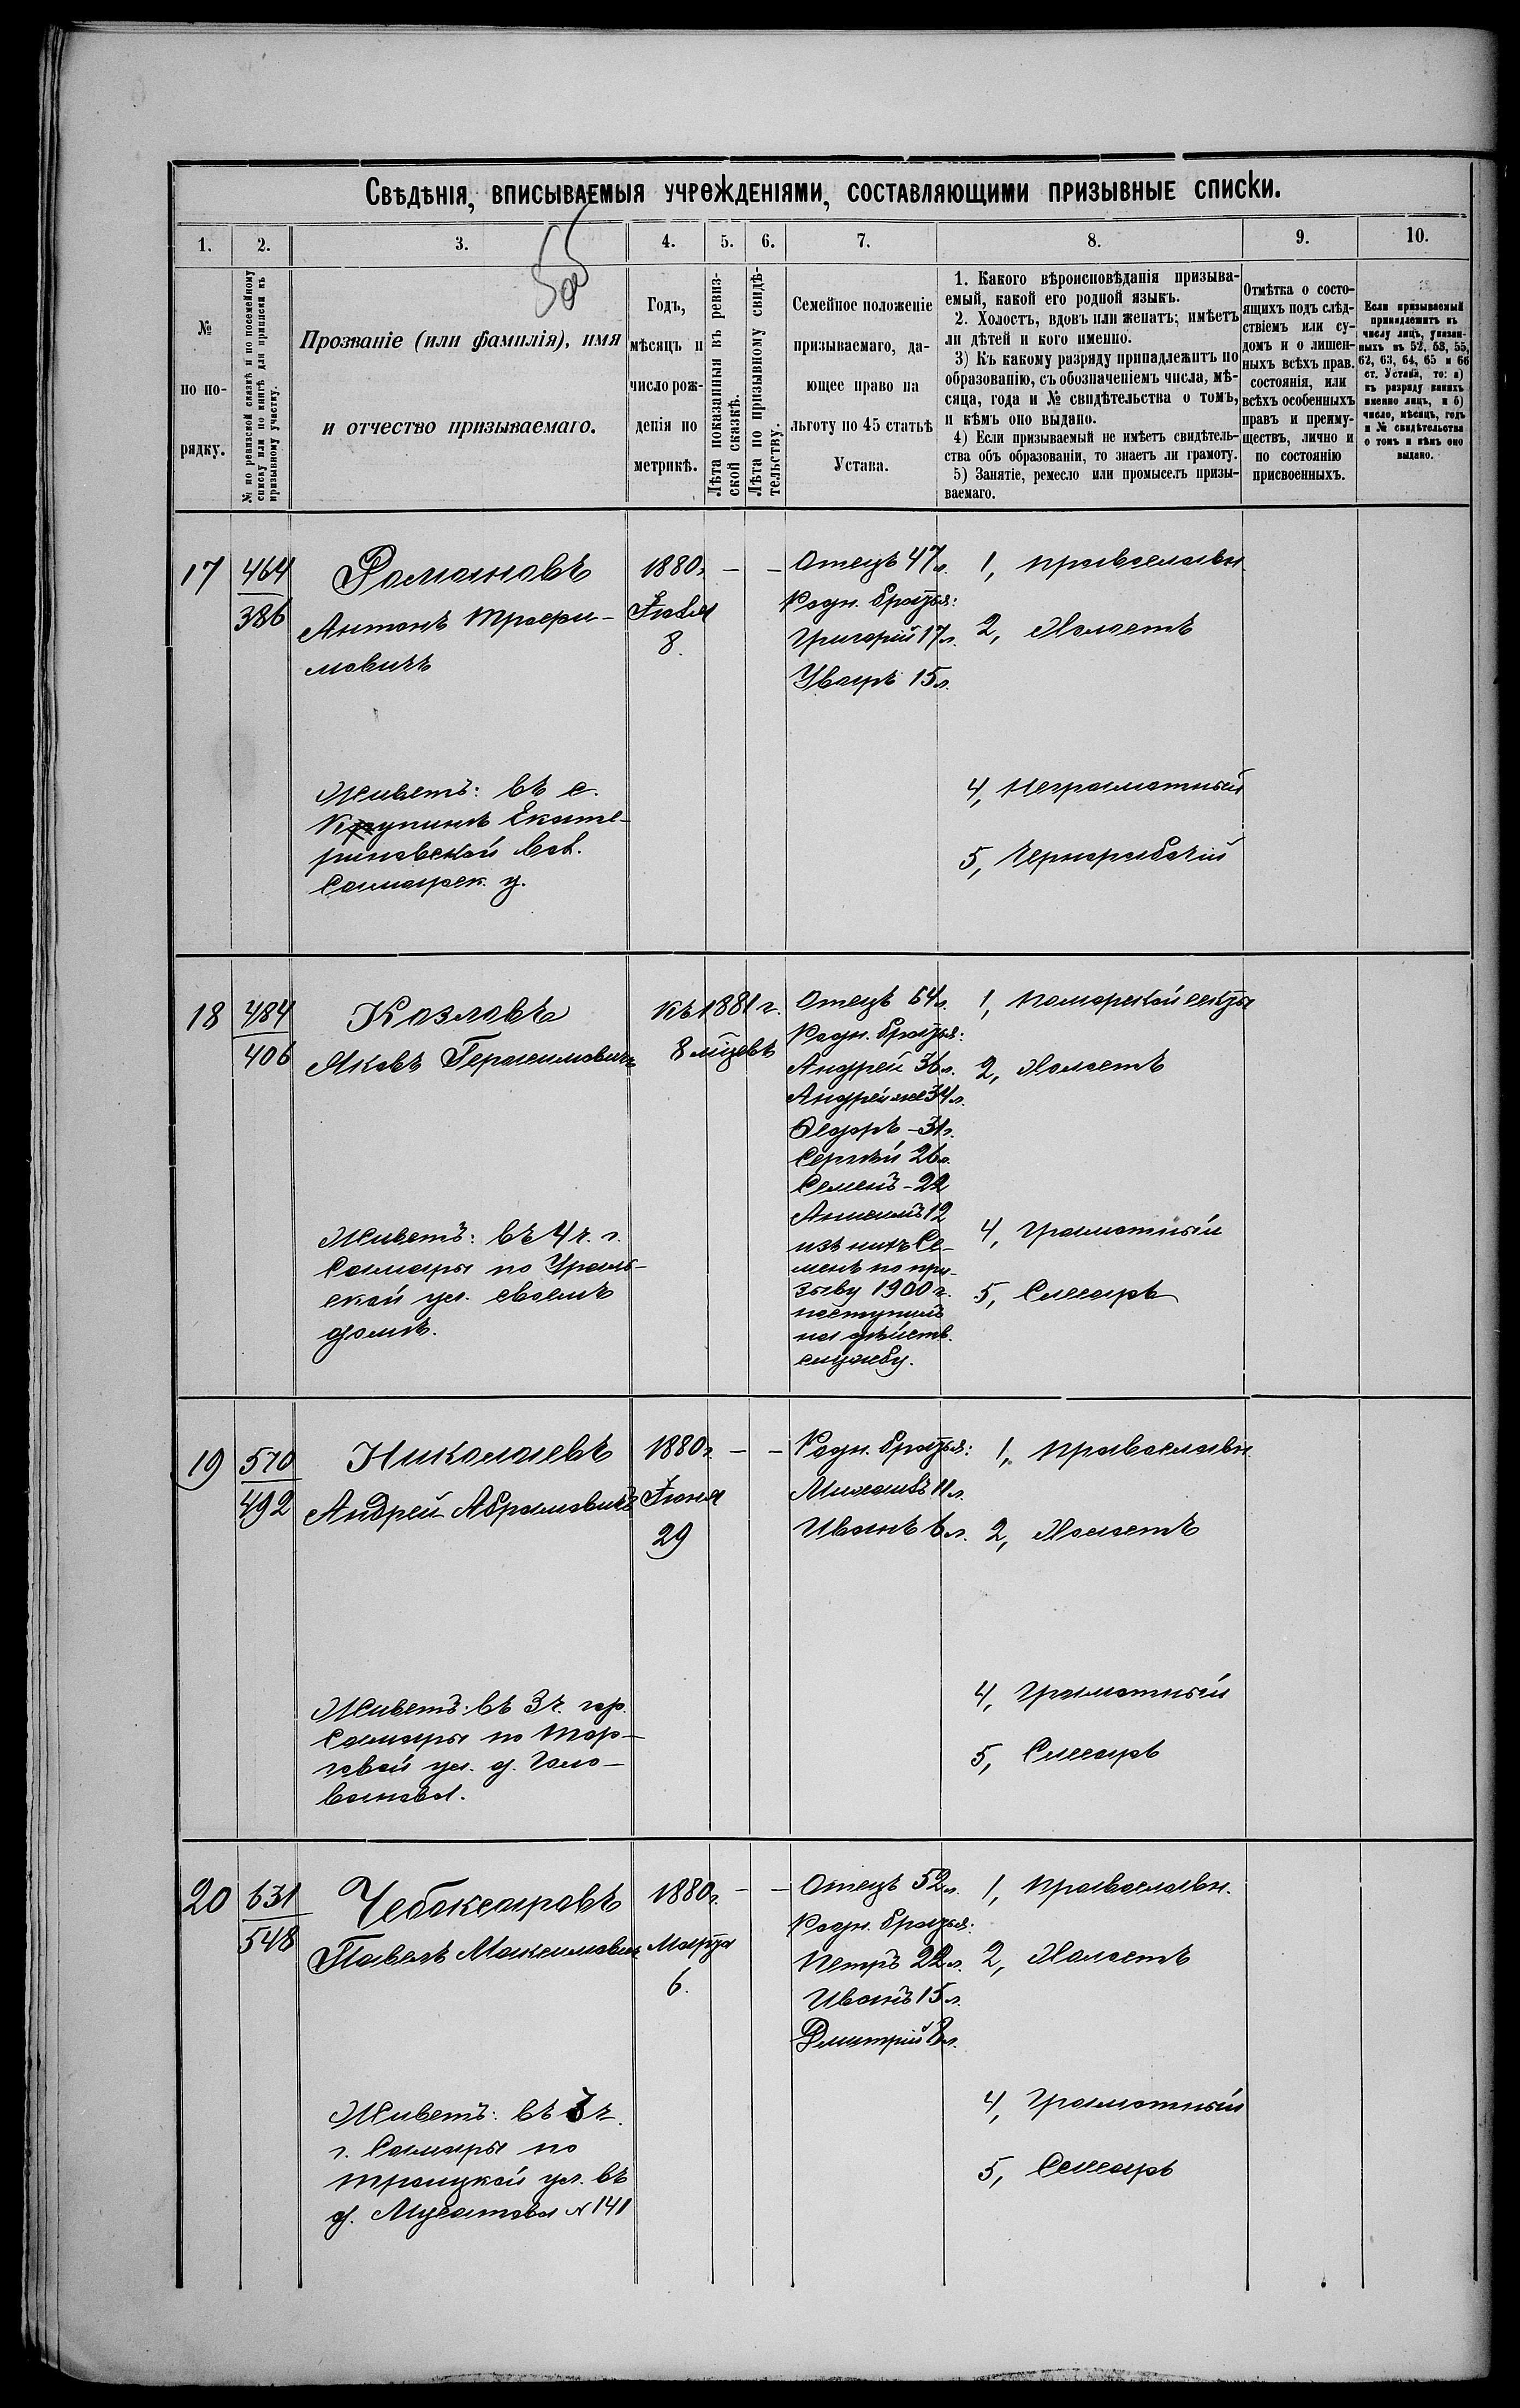 Свѣдѣнія, вписываемыя учрежденіями, составляющими призывные списки.
1. 2. 3. 4. 5. 6. 7. 8. 9. 10.
№ по по-
рядку.
№ по ревизской сказкѣ и по посемейному
списку или по книгѣ для приписки къ
призывному участку.
Прозваніе (или фамилія), имя
и отчество призываемаго.
Годъ,
мѣсяцъ и
число рож-
денія по
метрикѣ.
Лѣта показанныя въ ревиз-
ской сказкѣ.
Лѣта по призывному свидѣ-
тельству.
Семейное положеніе
призываемаго, да-
ющее право на
льготу по 45 статьѣ
Устава.
1. Какого вѣроисповѣданія призыва-
емый, какой его родной языкъ.
2. Холостъ, вдовъ или женатъ; имѣетъ
ли дѣтей и кого именно.
3) Къ какому разряду принадлежитъ по
образованію, съ обозначеніемъ числа, мѣ-
сяца, года и № свидѣтельства о томъ,
и кѣмъ оно выдано.
4) Если призываемый не имѣетъ свидѣтель-
ства объ образованіи, то знаетъ ли грамоту.
5) Занятіе, ремесло или промыселъ призы-
ваемаго.
Отмѣтка о состо-
ящихъ подъ слѣд-
ствіемъ или су-
домъ и о лишен-
ныхъ всѣхъ прав.
состоянія, или
всѣхъ особенныхъ
правъ и преиму-
ществъ, лично и
по состоянію
присвоенныхъ.
Если призываемый
принадлежитъ къ
числу лицъ, указан-
ныхъ въ 52, 53, 55,
62, 63, 64, 65 и 66
ст. Устава, то: а)
къ разряду какихъ
именно лицъ, и б)
число, мѣсяцъ, годъ
и № свидѣтельства
о томъ и кѣмъ оно
выдано.
17
464
386
Романовъ
Антонъ Трофи-
мовичъ
Живетъ: въ с.
Купинѣ Екате-
риновской вол.
Самарск. у.
1880 г.
Іюля
8.
– –
Отецъ 47 л.
Родн. братья:
Григорій 17 л.
Уваръ 15 л.
1, православн
2, Холостъ
4, Неграмотный
5, Чернорабочій
18
484
406
Козловъ
Яковъ Герасимовичъ
Живетъ: въ 4 ч. г.
Самары по Ураль-
ской ул. своемъ
домѣ.
къ 1881 г.
8 мѣцевъ
Отецъ 64 л.
Родн. братья:
Андрей 36 л.
Андрей же 34 л.
Федоръ – 31 г.
Сергѣй 26 л.
Семенъ – 22
Анисимъ 12
изъ нихъ Се-
менъ по при-
зыву 1900 г.
поступилъ
на дѣйств.
службу.
1, поморской секты
2, Холостъ
4, Грамотный
5, Слесарь
19
570
492
Николаевъ
Андрей Абрамовичъ
Живетъ: въ 3 ч. гор.
Самары по Тор-
говой ул. д. Голо-
ванова.
1880 г.
Іюня
29
– –
Родн. братья:
Михаилъ 11 л.
Иванъ 6 л.
1, православн.
2, Холостъ
4, Грамотный
5, Слесарь
20
631
548
Чебоксаровъ
Павелъ Максимович
Живетъ: въ 3 ч.
г. Самары по
Троицкой ул. въ
д. Мусатова № 141
1880 г.
Марта
6.
– –
Отецъ 52 л.
Родн. братья:
Петръ 22 л.
Иванъ 15 л.
Дмитрій 8 л.
1, Православн.
2, Холостъ
4, Грамотный
5, Слесарь